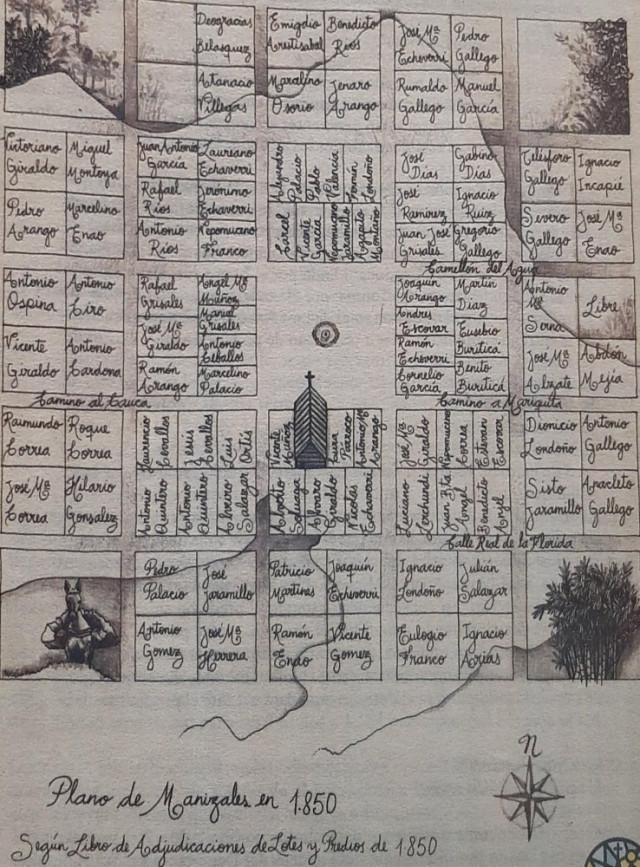 Deogracias
Belasquez
Atanacio
Villegas
Emigdio
Arestisabal
Benedicto
Rios
Marcelino
Osorio
Jenaro
Arango
José Mª
Echeverri
Pedro
Gallego
Rumaldo
Gallego
Manuel
García
Victoriano
Giraldo
Miguel
Montoya
Pedro
Arango
Marcelino
Enao
Juan Antonio
García
Laureano
Echaverri
Rafael
Rios
Jeronimo
Echaverri
Antonio
Rios
Nepomuceno
Franco
Alejandro
Palacio
Pablo
Valencia
Fermín
Londoño
Carcel
Vicente
García
Nepomuceno
Jaramillo
Agapito
Montaño
José
Días
Gabino
Días
José
Ramirez
Ignacio
Ruiz
Juan José
Grisales
Gregorio
Gallego
Telesforo
Gallego
Ignacio
Incapié
Severo
Gallego
José Mª
Enao
Camellon del Agua
Antonio
Ospina
Antonio
Ciro
Vicente
Giraldo
Antonio
Cardona
Rafael
Grisales
Angel Mª
Muñoz
Manuel
Grisales
José Mª
Giraldo
Antonio
Ceballos
Ramón
Arango
Marcelino
Palacio
Joaquin
Arango
Martin
Diaz
Andres
Escovar
Eusebio
Buriticá
Ramón
Echeverri
Benito
Buriticá
Cornelio
García
Antonio
Mª
Serna
Libre
José Mª
Alzate
Abdón
Mejía
Camino al Cauca
Camino a Mariquita
Raimundo
Correa
Roque
Correa
José Mª
Correa
Hilario
Gonsalez
Laurencio
Cevallos
Jesus
Cevallos
Luis
Ortis
Antonio
Quintero
Antonio
Quintero
Alveiro
Salazar
Vicente
Muñoz
Antonio Mª
Arango
Alvaro
Giraldo
Nicolas
Echeverri
José Mª
Giraldo
Nepomuceno
Correa
Estevan
Escovar
Luciano
Juan Bta
Angel
Benedicto
Angel
Dionicio
Londoño
Antonio
Gallego
Sisto
Jaramillo
Anacleto
Gallego
Calle Real de la Florida
Pedro
Palacio
José
Jaramillo
Antonio
Gomez
José Mª
Herrera
Patricio
Martines
Joaquín
Echeverri
Ramón
Enao
Vicente
Gomez
Ignacio
Londoño
Julián
Salazar
Eulogio
Franco
Ignacio
Arias
N
Plano de Manizales en 1.850
Según Libro de Adjudicaciones de Lotes y Predios de 1850